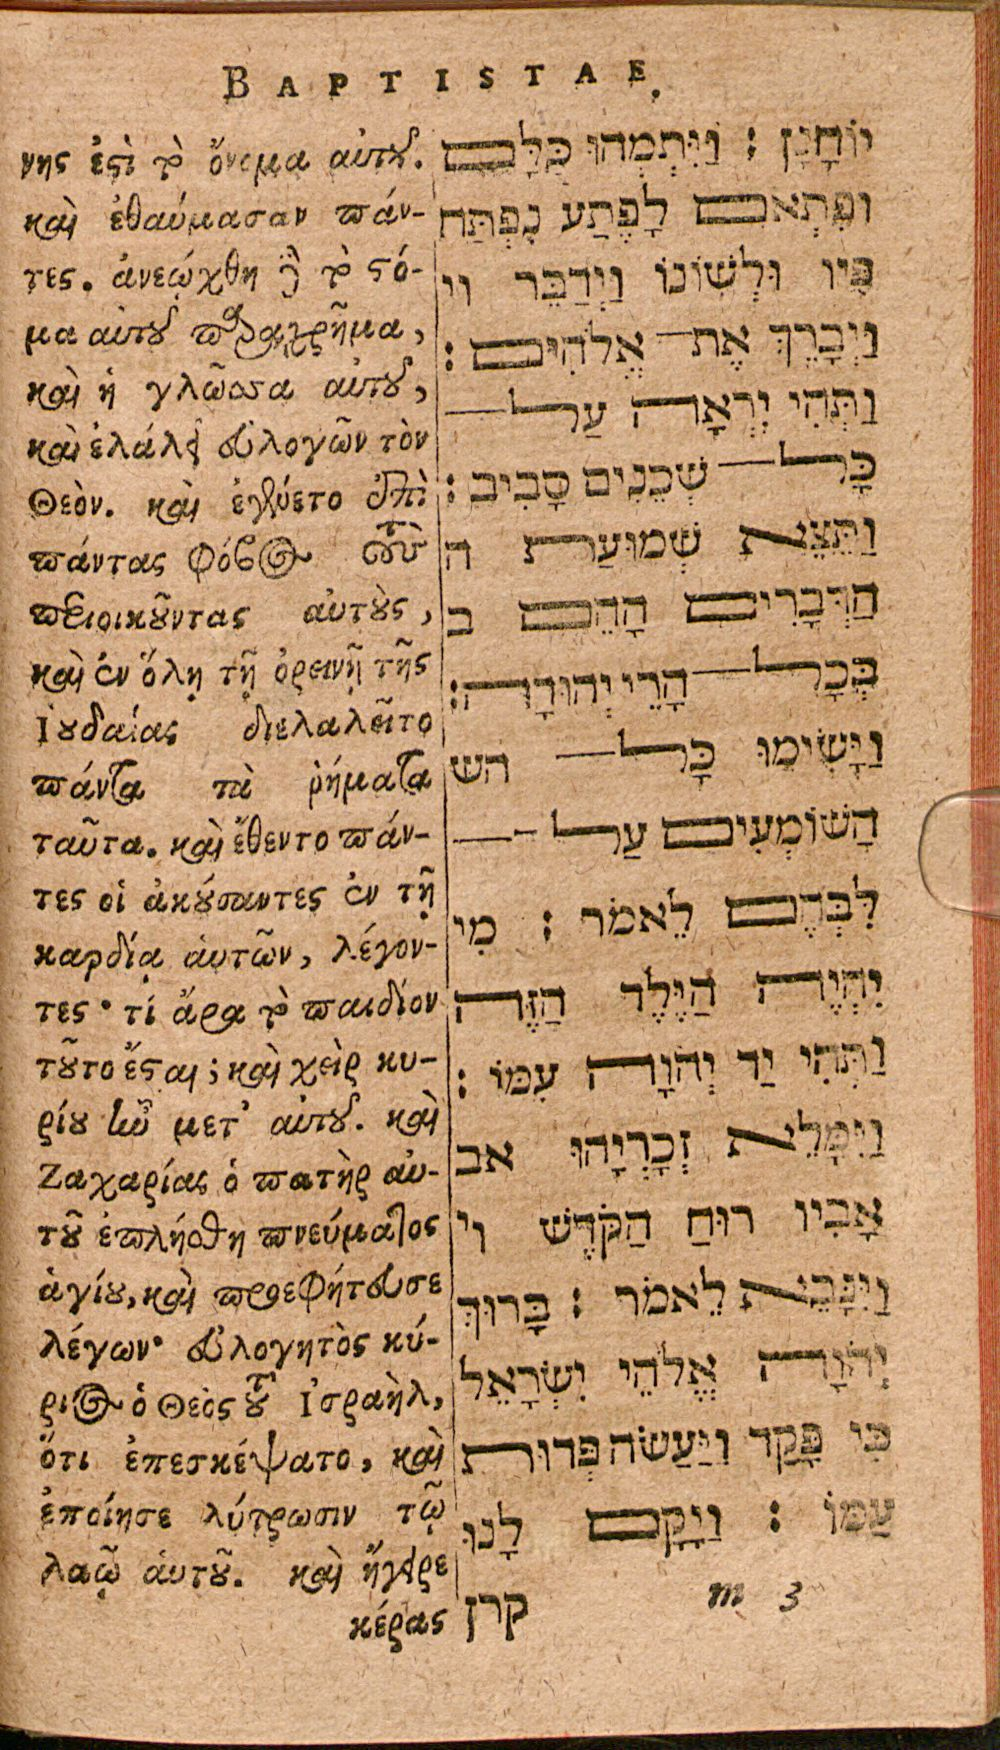 BAPTISTAE.
νης ἐςὶ τὸ ὄνομα αὐτοῦ.
καὶ ἐθαύμασαν πάν-
τες. ἀνεῴχθη δὲ τὸ ςό-
μα αὐτοῦ παραχρῆμα,
καὶ ἡ γλῶσσα αὐτοῦ,
καὶ ἐλάλει εὐλογῶν τὸν
Θεὸν. καὶ ἐγένετο ἐπὶ
πάντας φόβος τοὺς
περιοικοῦντας αὐτοὺς,
καὶ ἐν ὅλῃ τῇ ὀρεινῇ τῆς
Ἰουδαίας διελαλεῖτο
πάντα τὰ ῥήματα
ταῦτα. καὶ ἔθεντο πάν-
τες οἱ ἀκούσαντες ἐν τῇ
καρδίᾳ αὐτῶν, λέγον-
τες· τί ἄρα τὸ παιδίον
τοῦτο ἔςαι; καὶ χεὶρ κυ-
ρίου ἦν μετ' αὐτοῦ. καὶ
Ζαχαρίας ὁ πατὴρ αὐ-
τοῦ ἐπλήσθη πνεύματος
ἁγίου, καὶ προεφήτευσε
λέγων· εὐλογητὸς κύ-
ριος ὁ Θεὸς τοῦ Ἰσραὴλ,
ὅτι ἐπεσκέψατο, καὶ
ἐποίησε λύτρωσιν τῷ
λαῷ αὑτοῦ. καὶ ἤγειρε
κέρας
יוֹחָנָן : וַיִּתְמְהוּ כֻּלָּם
וּפִתְאֹם לָפֶתַע נִפְתַּח
פִּיו וּלְשׁוֹנוֹ וַיְדַבֵּר וי
וַיְבָרֶךְ אֶת־ אֱלֹהִים :
וַתְּהִי יִרְאָה עַל־
כָּל־ שְׁכֵנִים סָבִיב :
וַתֵּצֵאת שְׁמוּעַת ה
הַדְּבָרִים הָהֵם ב
בְּכָל־ הָרֵי יְהוּדָה :
וַיָּשִׂימוּ כָּל־ הש
הַשּׁוֹמְעִים עַל־
לִבְּהֶם לֵאמֹר : מִי
יִהְיֶה הַיֶּלֶד הַזֶּה
וַתְּהִי יַד יְהֹוָה עִמּוֹ :
וַיִּמָּלֵאת זְכַרְיָהוּ אב
אָבִיו רוּחַ הַקֹּדֶשׁ וי
וַיִּנָּבֵאת לֵאמֹר : בָּרוּךְ
יְהֹוָה אֱלֹהֵי יִשְׂרָאֵל
כִּי פָּקַד וַיַּעַשׂה פְּדוּת
עַמּוֹ : וַיָּקֶם לָנוּ
קרן
m 3